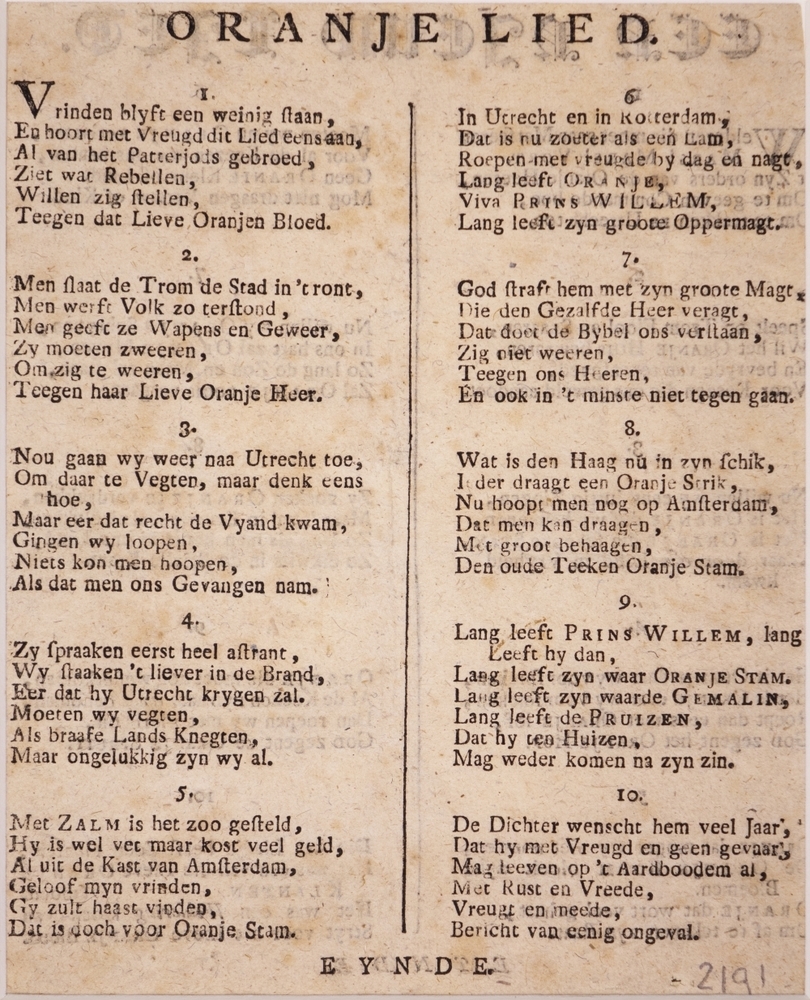 ORANJE LIED.
1.
Vrinden blyft een weinig ſtaan,
En hoort met Vreugd dit Lied eens aan,
Al van het Patterjods gebroed,
Ziet wat Rebellen,
Willen zig ſtellen,
Teegen dat Lieve Oranjen Bloed.
2.
Men ſlaat de Trom de Stad in 't ront,
Men werft Volk zo terſtond,
Men geeft ze Wapens en Geweer,
Zy moeten zweeren,
Om zig te weeren,
Teegen haar Lieve Oranje Heer.
3.
Nou gaan wy weer naa Utrecht toe,
Om daar te Vegten, maar denk eens
hoe,
Maar eer dat recht de Vyand kwam,
Gingen wy loopen,
Niets kon men hoopen,
Als dat men ons Gevangen nam.
4.
Zy ſpraaken eerst heel aſtrant,
Wy ſtaaken 't liever in de Brand,
Eer dat hy Utrecht krygen zal.
Moeten wy vegten,
Als braafe Lands Knegten,
Maar ongelukkig zyn wy al.
5.
Met ZALM is het zoo geſteld,
Hy is wel vet maar kost veel geld,
Al uit de Kast van Amſterdam,
Geloof myn vrinden,
Gy zult haast vinden,
Dat is doch voor Oranje Stam.
6
In Utrecht en in Rotterdam,
Dat is nu zoeter als een Lam,
Roepen met vreugde by dag en nagt,
Lang leeft ORANJE,
Viva PRINS WILLEM,
Lang leeft zyn groote Oppermagt.
7.
God ſtraft hem met zyn groote Magt,
Die den Gezalfde Heer veragt,
Dat doet de Bybel ons verſtaan,
Zig niet weeren,
Teegen ons Heeren,
En ook in 't minste niet tegen gaan.
8.
Wat is den Haag nu in zyn ſchik,
Ieder draagt een Oranje Strik,
Nu hoopt men nog op Amſterdam,
Dat men kan draagen,
Met groot behaagen,
Den oude Teeken Oranje Stam.
9.
Lang leeft PRINS WILLEM, lang
Leeft hy dan,
Lang leeft zyn waar ORANJE STAM.
Lang leeft zyn waarde GEMALIN,
Lang leeft de PRUIZEN,
Dat hy ten Huizen,
Mag weder komen na zyn zin.
10.
De Dichter wenscht hem veel Jaar,
Dat hy met Vreugd en geen gevaar,
Mag leeven op 't Aardboodem al,
Met Rust en Vreede,
Vreugt en meede,
Bericht van eenig ongeval.
EYNDE.
2191